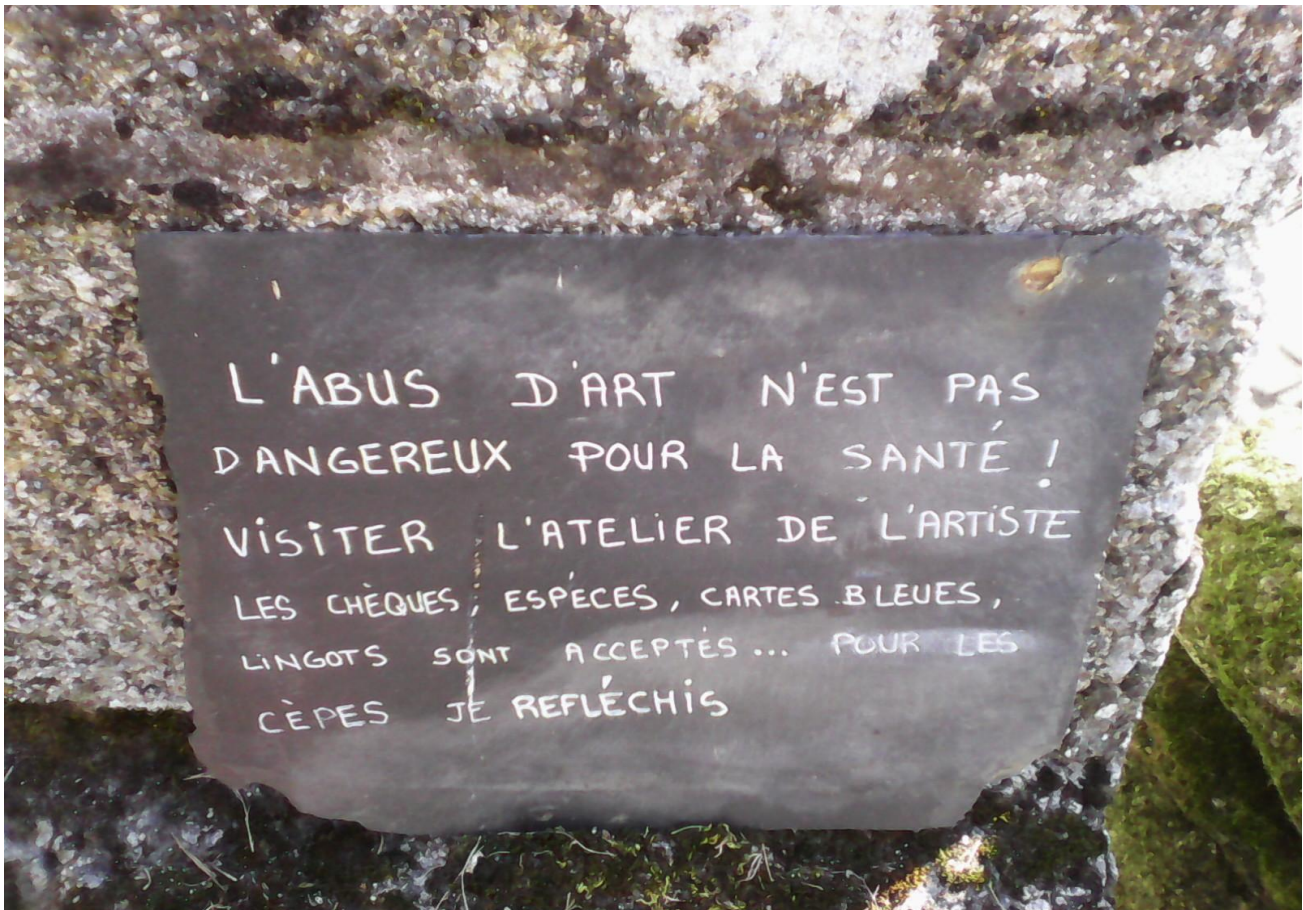 L'ABUS D'ART N'EST PAS
DANGEREUX POUR LA SANTÉ !
VISITER L'ATELIER DE L'ARTISTE
LES CHÈQUES, ESPÉCES, CARTES BLEUES,
LINGOTS SONT ACCEPTÉS... POUR LES
CÈPES JE REFLÉCHIS